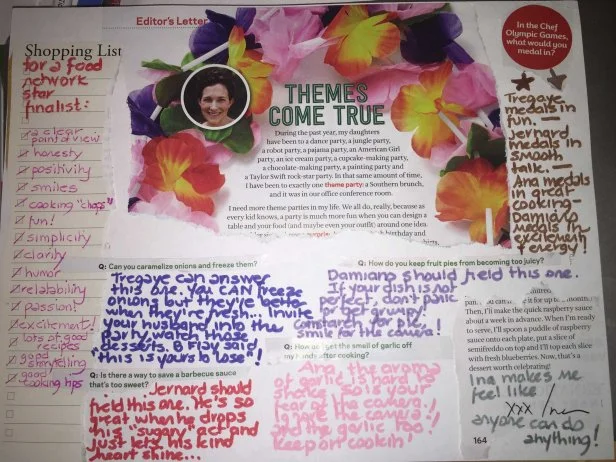 Editor's Letter
Shopping List
for a food
network
star
finalist:
a clear
point of view
honesty
positivity
smiles
cooking "chops"
fun!
simplicity
clarity
humor
relatability
passion!
excitement!
lots of good
recipes
good
storytelling
good
cooking tips
THEMES
COME TRUE
During the past year, my daughters
have been to a dance party, a jungle party,
a robot party, a pajama party, an American Girl
party, an ice cream party, a cupcake-making party,
a chocolate-making party, a painting party and
a Taylor Swift rock-star party. In that same amount of time,
I have been to exactly one theme party: a Southern brunch,
and it was in our office conference room.
I need more theme parties in my life. We all do, really, because as
every kid knows, a party is much more fun when you can design a
table and your food (and maybe even your outfit) around one idea
birthday and
In the Chef
Olympic Games,
what would you
medal in?
Tregaye
medals in
fun. —
Jernard
medals in
smooth
talk. —
Ana medals
in great
cooking—
Damiano
medals in
excitement
+ energy!
Q: Can you caramelize onions and freeze them?
Tregaye can answer
this one. You can freeze
onions but they're better
when they're fresh... Invite
your husband into the
barn, watch those
desserts, & Play said
"this is yours to lose"!
Q: How do you keep fruit pies from becoming too juicy?
Damiano should field this one.
If your dish is not
perfect, don't panic
or get grumpy!
Constant joy plz
smile for the camera!
Q: Is there a way to save a barbecue sauce
that's too sweet?
Jernard should
field this one. He's so
great when he drops
his "sugary" act and
just lets his kind
heart shine...
Q: How do I get the smell of garlic off
my hands after cooking?
Ana the aroma
of garlic is hard to
shake, so is your
fear of the camera.
Love the camera!
and the garlic too!
Keep on cookin'
Then I'll make the quick raspberry sauce
about a week in advance. When I'm ready
to serve, I'll spoon a puddle of raspberry
sauce onto each plate, put a slice of
semifreddo on top and I'll top each slice
with fresh blueberries. Now, that's a
dessert worth celebrating!
Ina makes me
feel like
xxx Ina
anyone can do
anything!
164